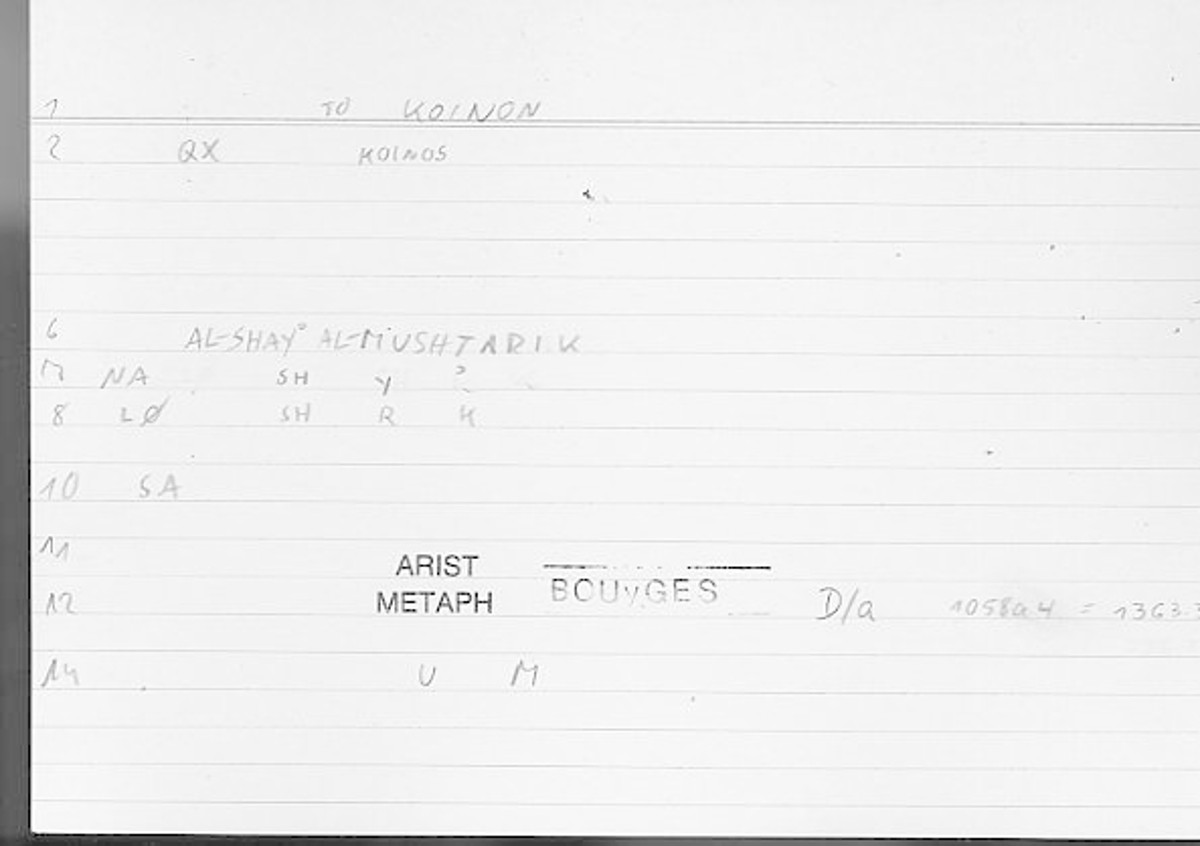 1 TO KOINON
2 QX KOINOS
6 AL-SHAYʾ AL-MUSHTARIK
7 NA SH Y ʾ
8 LØ SH R K
10 SA
11 ARIST
12 METAPH BOUYGES D/a 1058a4 = 1363.3
14 U M